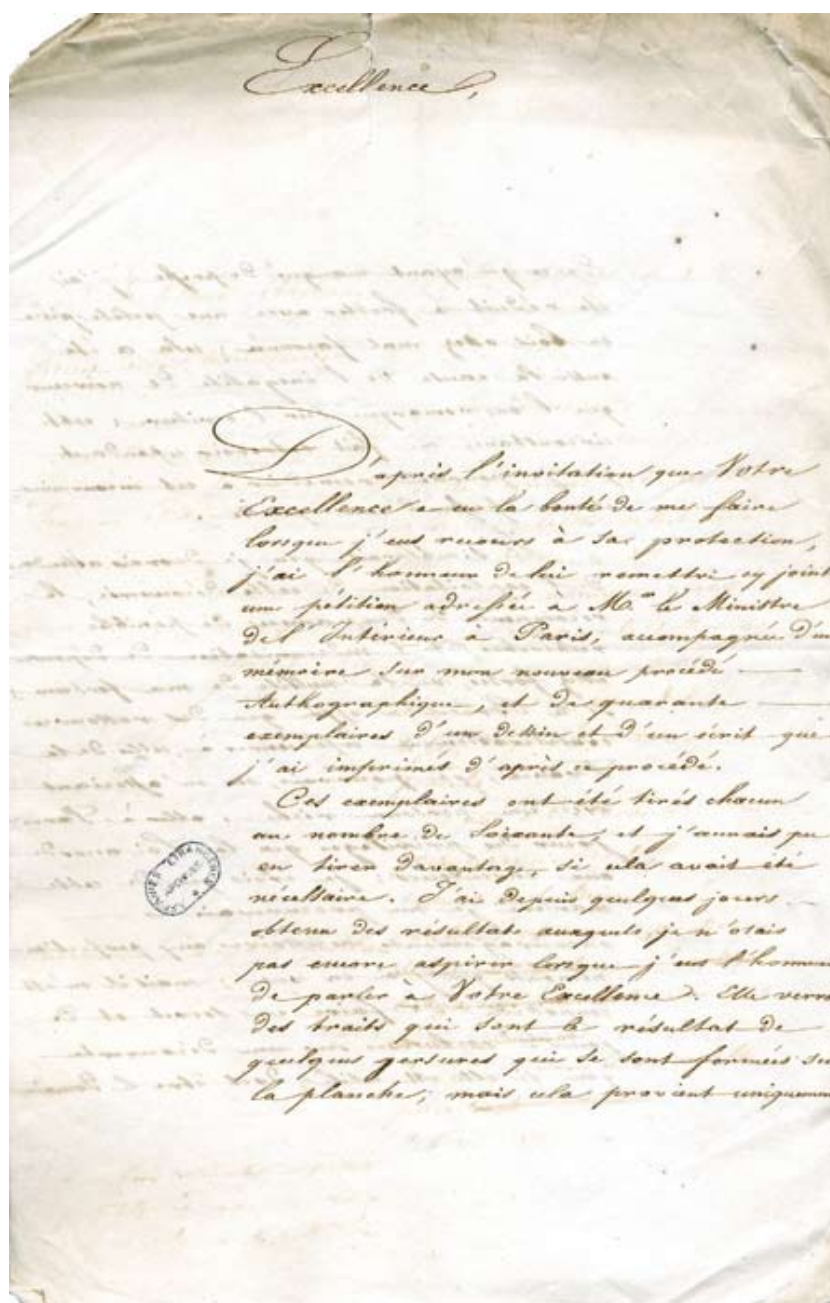 Excellence,
D'après l'invitation que Votre
Excellence a eu la bonté de me faire
lorsque j'eus recours à sa protection,
j'ai l'honneur de lui remettre cy joint
une pétition adressée à M. le Ministre
de l'Intérieur à Paris, accompagnée d'un
mémoire sur mon nouveau procédé
Authographique, et de quarante
exemplaires d'un dessin et d'un écrit que
j'ai imprimés d'après ce procédé.
Ces exemplaires ont été tirés chacun
au nombre de Soixante, et j'aurais pu
en tirer davantage, si cela avait été
nécessaire. J'ai depuis quelques jours
obtenu des résultats auxquels je n'osais
pas encore aspirer lorsque j'eus l'honneu
de parler à Votre Excellence. Elle verra
des traits qui sont le résultat de
quelques gersures qui se sont formées su
la planche; mais cela provient uniqueme